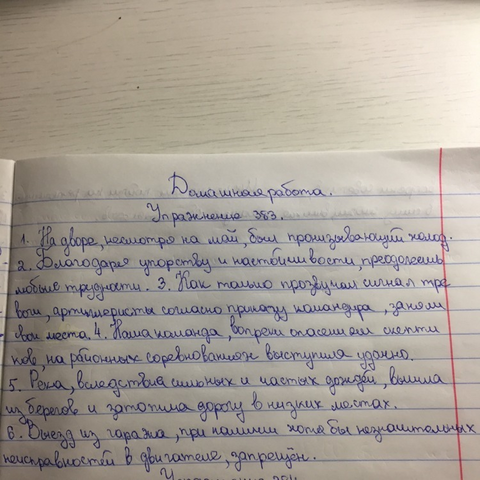 Домашняя работа.
Упражнение 383.
1. На дворе, несмотря на май, был пронизывающий холод.
2. Благодаря упорству и настойчивости, преодолеешь
любые трудности. 3. Как только прозвучал сигнал тре
воги, артиллеристы согласно приказу командира, заняли
свои места 4. Наша команда, вопреки опасениям скепти
ков, на районных соревнованиях выступила удачно.
5. Река, вследствие сильных и частых дождей, вышла
из берегов и затопила дорогу в низких местах.
6. Выезд из гаража, при наличии хотя бы незначительных
неисправностей в двигателе, запрещён.